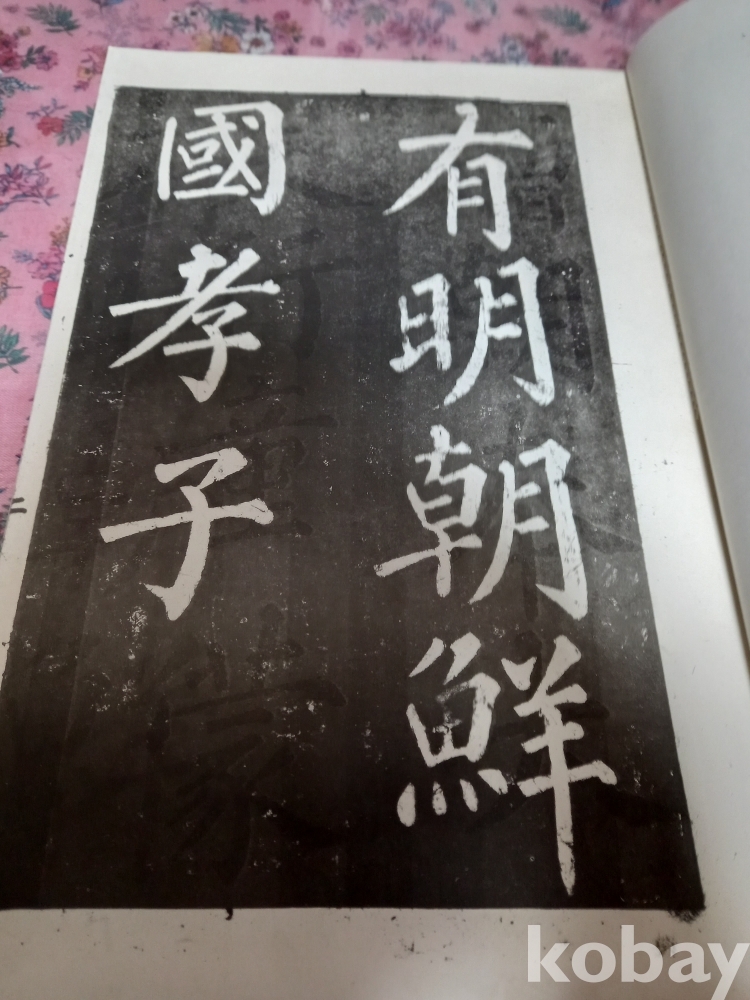 有明朝鮮
國孝子
二
kobay